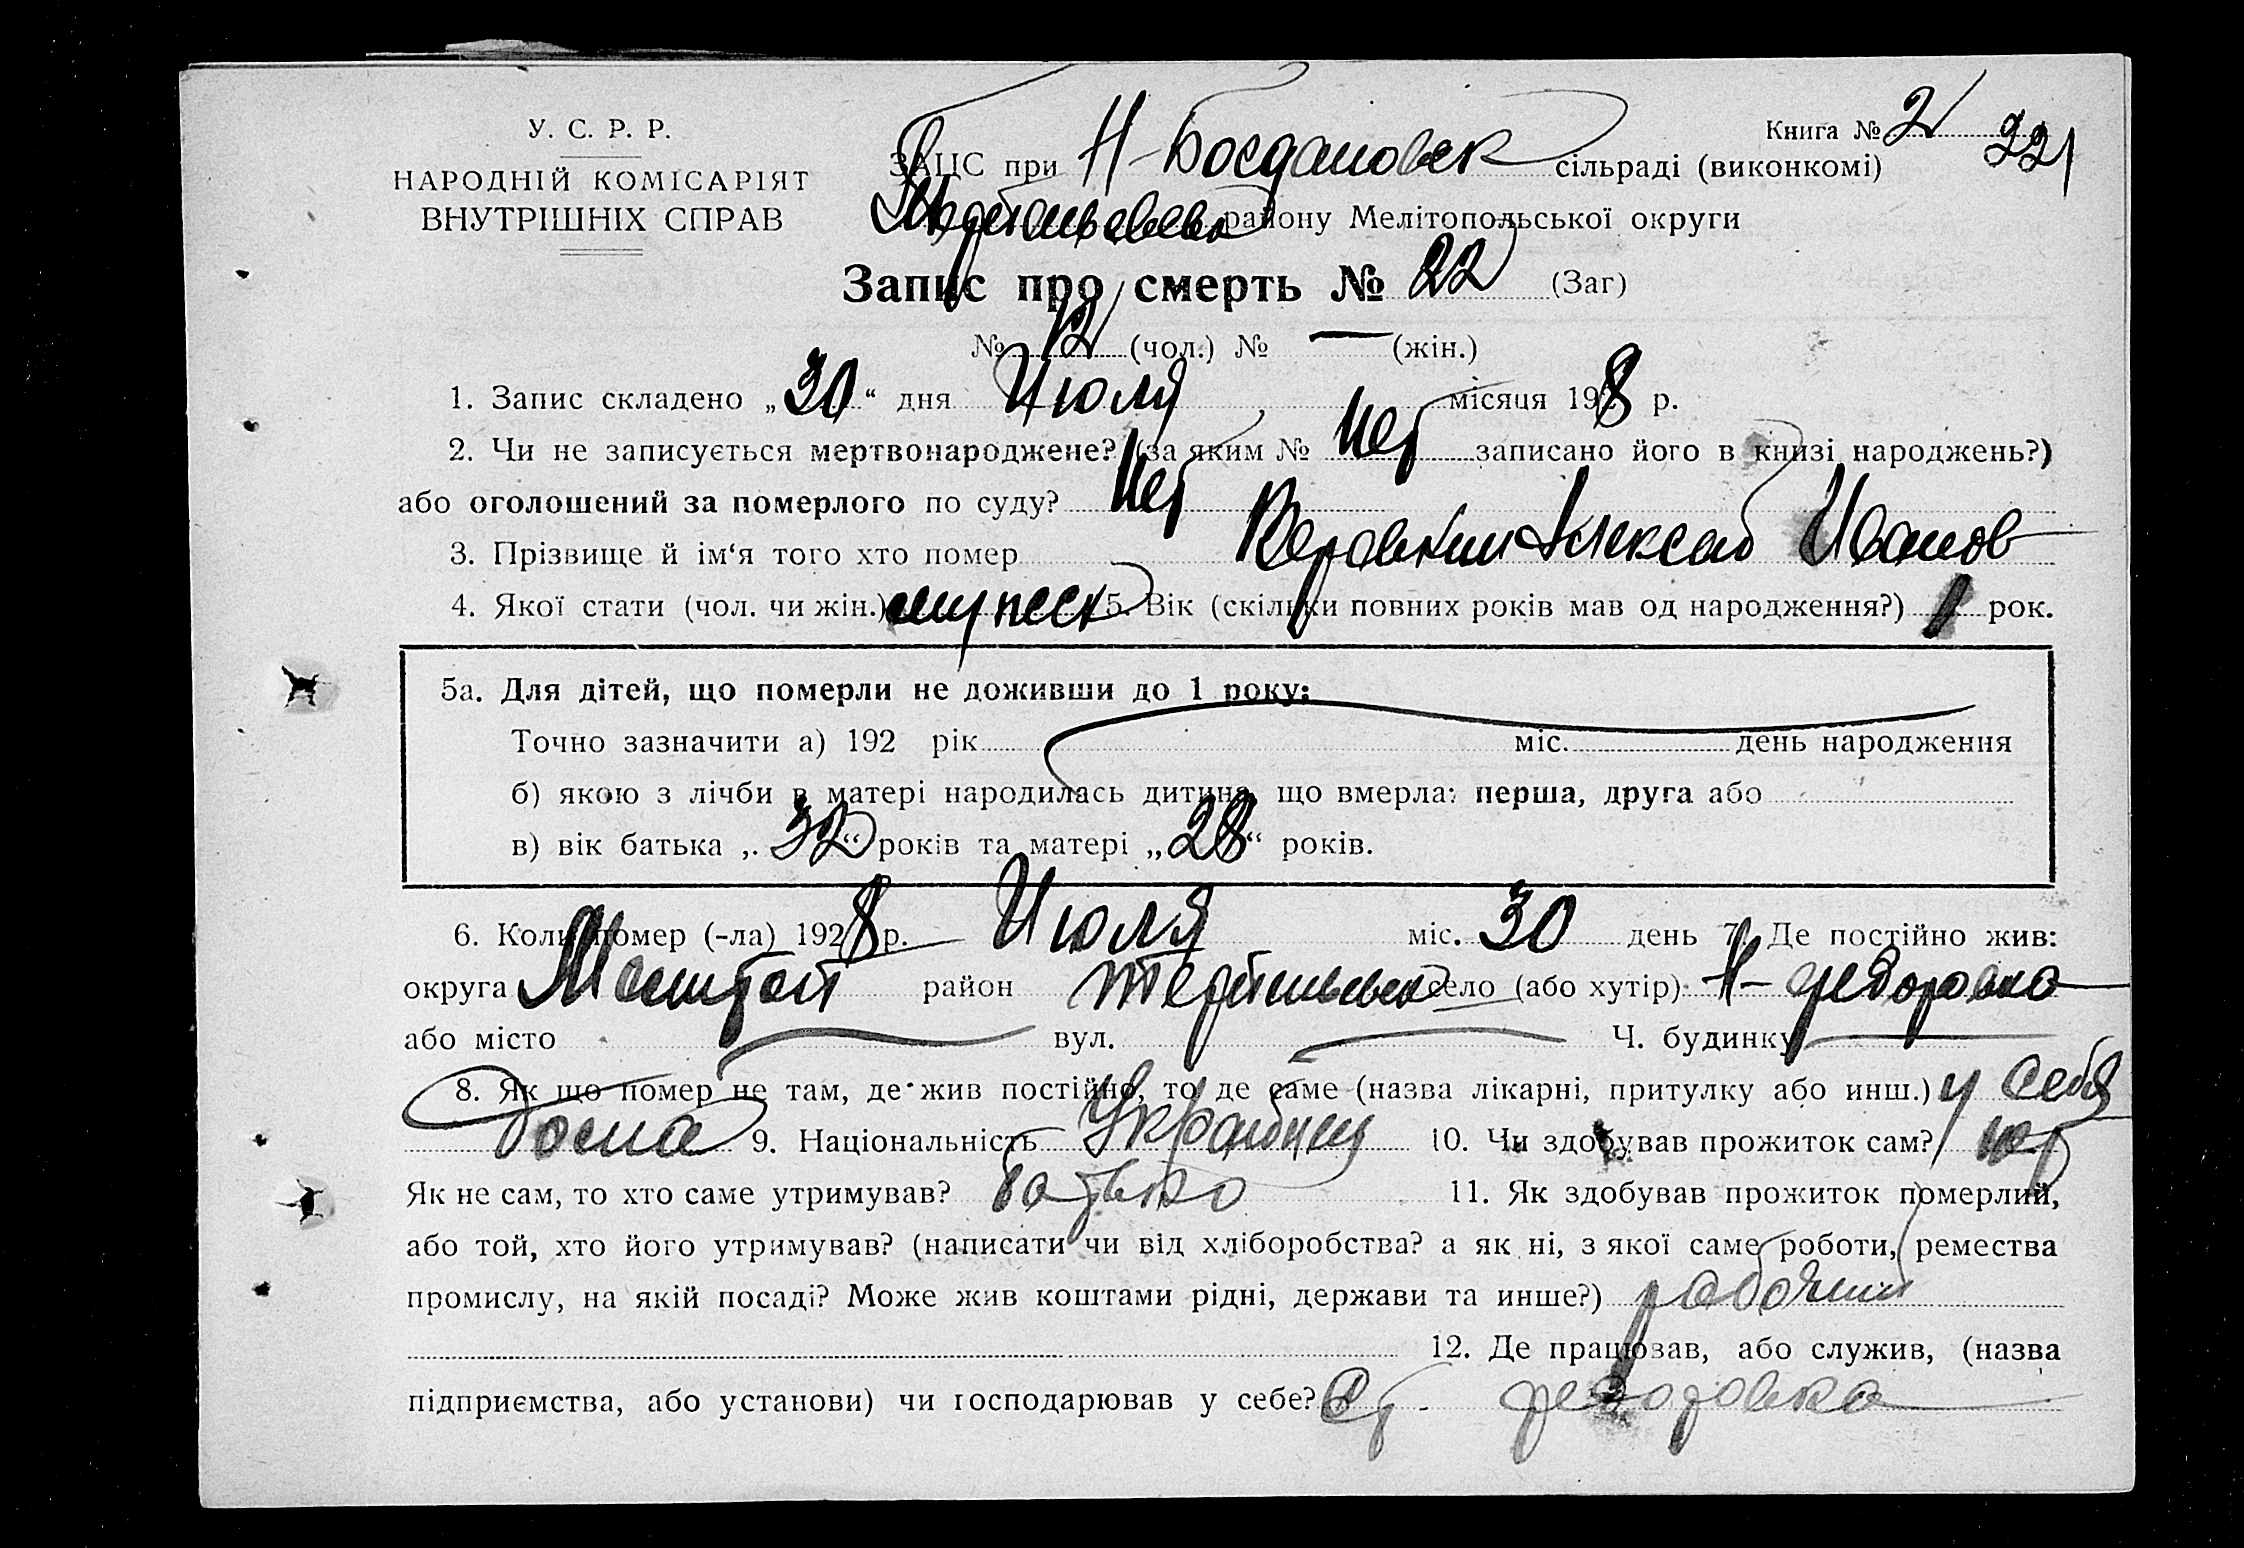 У. С. Р. Р.
НАРОДНІЙ КОМІСАРІЯТ
ВНУТРІШНІХ СПРАВ
Книга № 2
221
ЗАЦС при Н-Богдановск сільраді (виконкомі)
району Мелітопольської округи
Запис про смерть № 22 (Заг)
№ 12 (чол.) № — (жін.)
1. Запис складено „30“ дня Июля місяця 1928 р.
2. Чи не записується мертвонароджене? (за яким № Нет записано його в книзі народжень?)
або оголошений за померлого по суду? Нет
3. Прізвище й ім‘я того хто помер Алексаб Иванов
4. Якої стати (чол. чи жін.) мужеск 5. Вік (скільки повних років мав од народження?) 1 рок.
5а. Для дітей, що померли не доживши до 1 року:
Точно зазначити а) 192 рік міс. день народження
б) якою з лічби в матері народилась дитина, що вмерла: перша, друга або
в) вік батька „32“ років та матері „28“ років.
6. Коли помер (-ла) 1928 р. Июля міс. 30 день 7. Де постійно жив:
округа район село (або хутір) Н-Федоровка
або місто — вул. — Ч. будинку —
8. Як що помер не там, де жив постійно, то де саме (назва лікарні, притулку або инш.) у себя
дома 9. Національність Украінец 10. Чи здобував прожиток сам? нет
Як не сам, то хто саме утримував? батько 11. Як здобував прожиток померлий,
або той, хто його утримував? (написати чи від хліборобства? а як ні, з якої саме роботи, ремества
промислу, на якій посаді? Може жив коштами рідні, держави та инше?) рабочий
12. Де працював, або служив, (назва
підприємства, або установи) чи господарював у себе? Ст. Федоровка